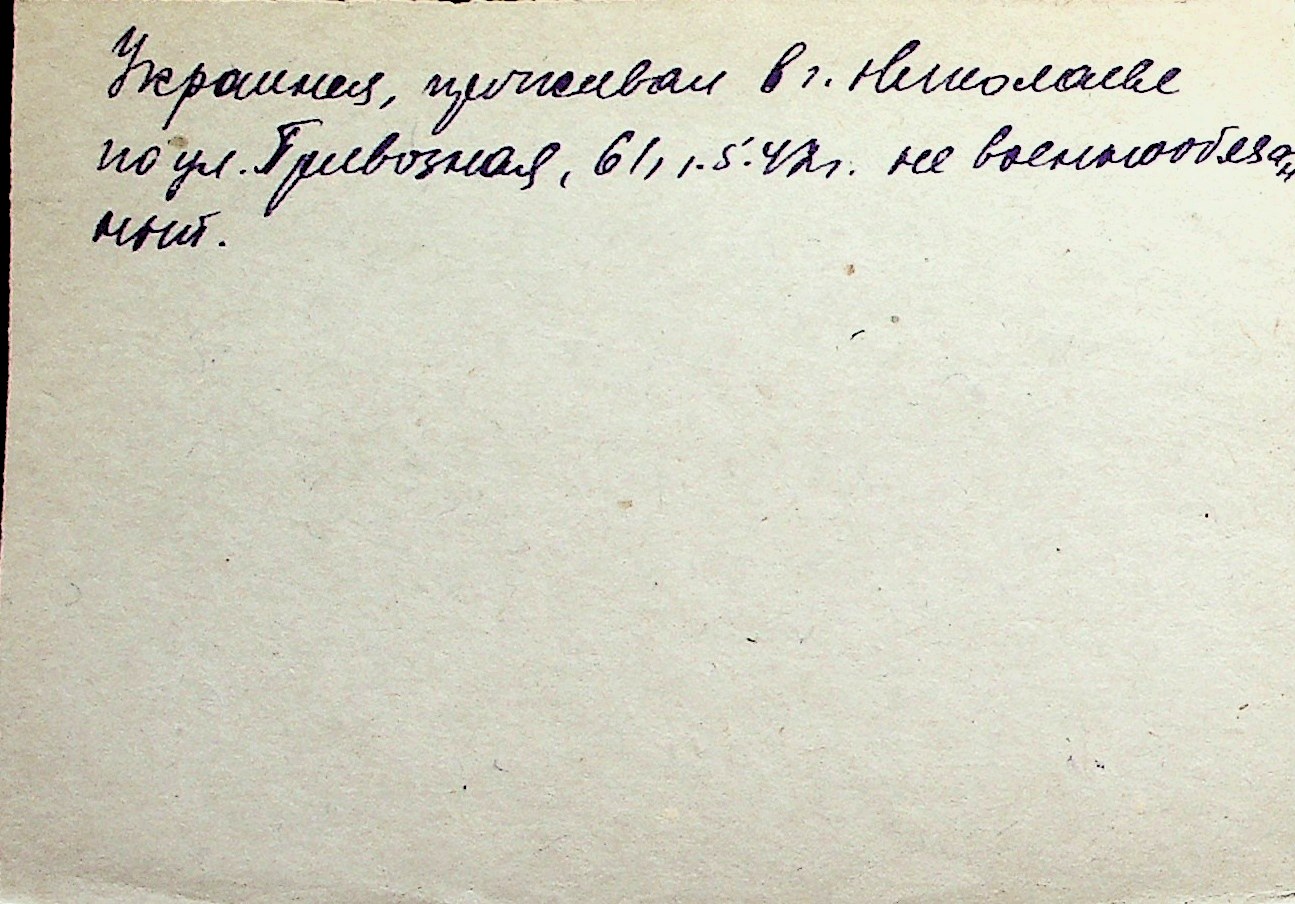 Украинец, проживал в г. Николаеве
по ул. Привозная, 61, 1.5.42г. не военнообязан
ный.